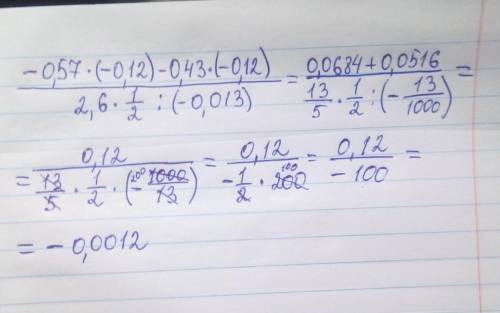 (-0,57·(-0,12)-0,43·(-0,12))/(2,6·1/2:(-0,013)) = (0,0684+0,0516)/(13/5·1/2:(-13/1000)) =
= 0,12/(13/5·1/2·(-200 1000/13)) = 0,12/(-1/2·200 100) = 0,12/-100 =
= -0,0012